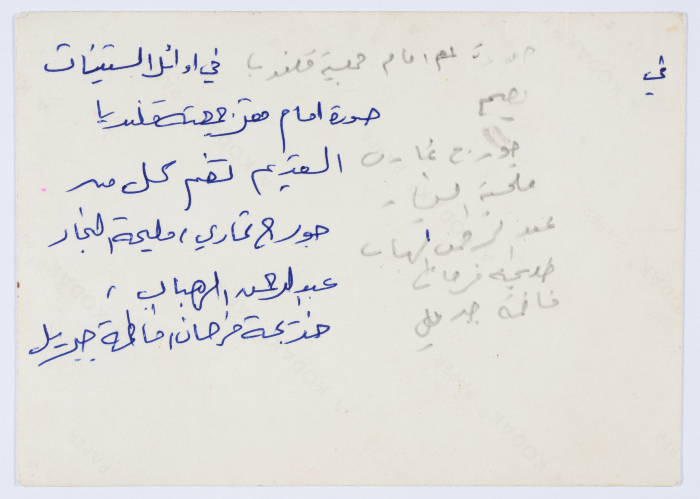 في
في اوائل الستينات
صورة امام مقر جمعية قلنديا
القديم تضم كل من
جورج غاري، مليحة النجار
عبد الرحمن الرهباب،
خديجة فرحان، فاطمة جبريل
صورة لهم امام جمعية قلنديا
تضم
جورج غاري
مليحة النجار
عبد الرحمن الرهباب
خديجة فرحان
فاطمة جبريل